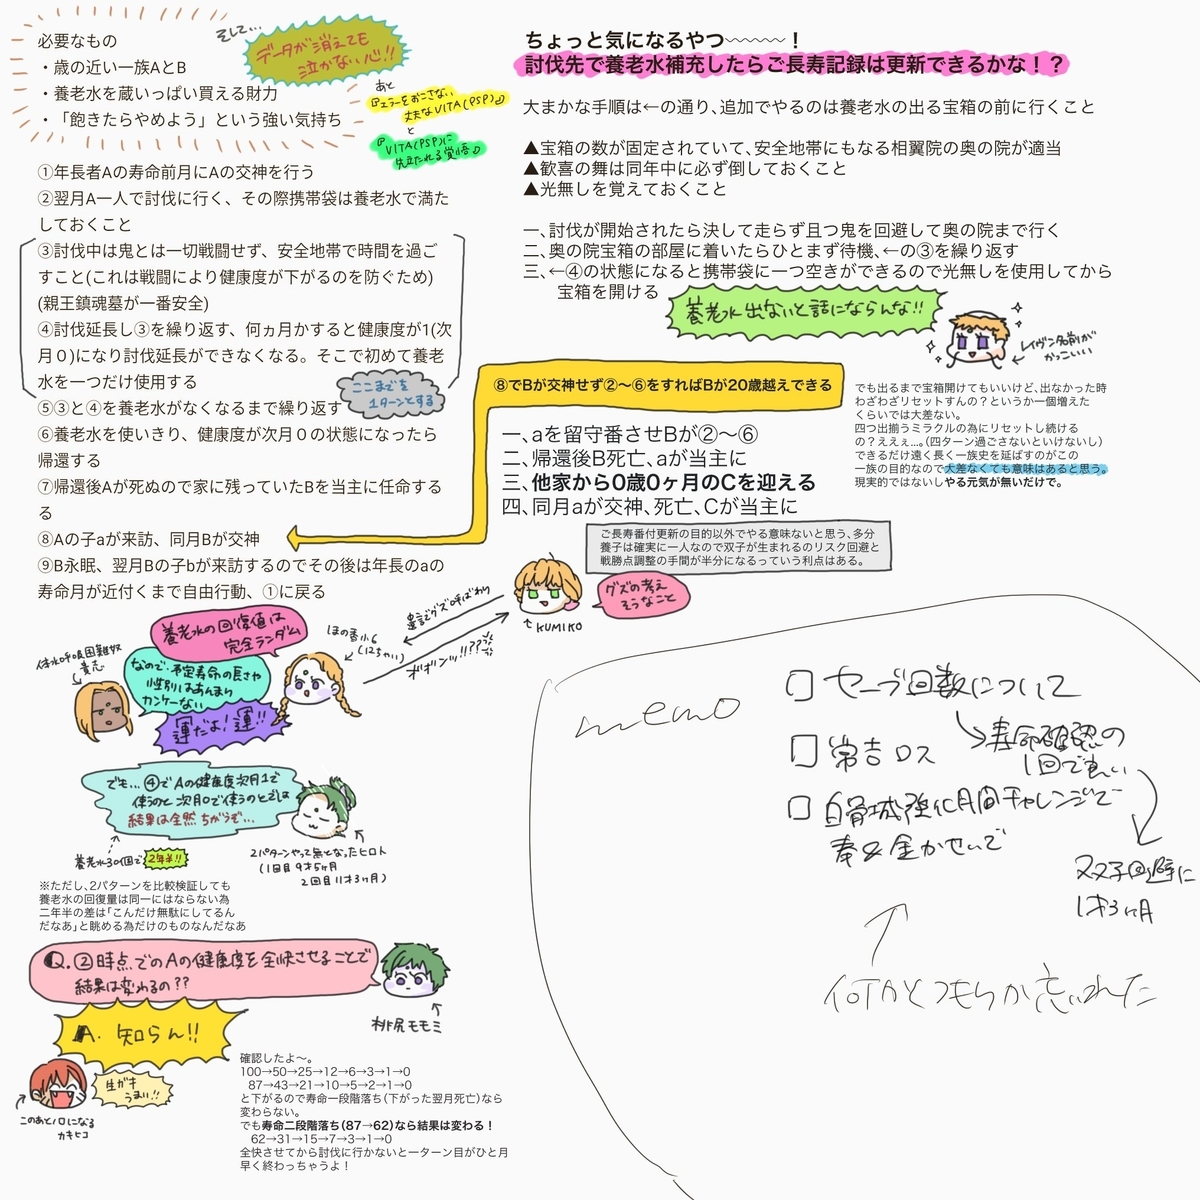 必要なもの
・歳の近い一族AとB
・養老水を蔵いっぱい買える財力
・「飽きたらやめよう」という強い気持ち
そして…
データが消えても
泣かない心!!
あと
『エラーをおこさない
丈夫なVITA(PSP)』
と
『VITA(PSP)に
先立たれる覚悟』
①年長者Aの寿命前月にAの交神を行う
②翌月A一人で討伐に行く、その際携帯袋は養老水で満た
しておくこと
③討伐中は鬼とは一切戦闘せず、安全地帯で時間を過ご
すこと(これは戦闘により健康度が下がるのを防ぐため)
(親王鎮魂墓が一番安全)
④討伐延長し③を繰り返す、何ヵ月かすると健康度が1(次
月０)になり討伐延長ができなくなる。そこで初めて養老
水を一つだけ使用する
ここまでを
1ターンとする
⑤③と④を養老水がなくなるまで繰り返す
⑥養老水を使いきり、健康度が次月０の状態になったら
帰還する
⑦帰還後Aが死ぬので家に残っていたBを当主に任命す
る
⑧Aの子aが来訪、同月Bが交神
⑨B永眠、翌月Bの子bが来訪するのでその後は年長のaの
寿命月が近付くまで自由行動、①に戻る
ちょっと気になるやつ〰〰〰！
討伐先で養老水補充したらご長寿記録は更新できるかな！？
大まかな手順は←の通り、追加でやるのは養老水の出る宝箱の前に行くこと
▲宝箱の数が固定されていて、安全地帯にもなる相翼院の奥の院が適当
▲歓喜の舞は同年中に必ず倒しておくこと
▲光無しを覚えておくこと
一、討伐が開始されたら決して走らず且つ鬼を回避して奥の院まで行く
二、奥の院宝箱の部屋に着いたらひとまず待機、←の③を繰り返す
三、←④の状態になると携帯袋に一つ空きができるので光無しを使用してから
宝箱を開ける
養老水出ないと話にならんな!!
レイヴン名前が
かっこいい
でも出るまで宝箱開けてもいいけど、出なかった時
わざわざリセットすんの？というか一個増えた
くらいでは大差ない。
四つ出揃うミラクルの為にリセットし続ける
の？ええぇ…。(四ターン過ごさないといけないし)
できるだけ遠く長く一族史を延ばすのがこの
一族の目的なので大差なくても意味はあると思う。
現実的ではないしやる元気が無いだけで。
⑧でBが交神せず②〜⑥をすればBが20歳越えできる
一、aを留守番させBが②〜⑥
二、帰還後B死亡、aが当主に
三、他家から0歳0ヶ月のCを迎える
四、同月aが交神、死亡、Cが当主に
ご長寿番付更新の目的以外でやる意味ないと思う、多分
養子は確実に一人なので双子が生まれるのリスク回避と
戦勝点調整の手間が半分になるっていう利点はある。
グズの考え
そうなこと
KUMIKO
遺言でグズ呼ばわり
ボボンッ!!??
養老水の回復値は
完全ランダム
なので予定寿命の長さや
性別はあんまり
カンケーない
運だよ！運!!
貴志
でも…④でAの健康度次月1で
使うのと次月0で使うのとでは
結果は全然ちがうぞ…
養老水30個で2年半!!
2パターンやって無となったヒロト
(1回目9才5ヶ月
2回目11才3ヶ月)
※ただし、2パターンを比較検証しても
養老水の回復量は同一にはならない為
二年半の差は「こんだけ無駄にしてるん
だなあ」と眺める為だけのものなんだなあ
Q.②時点でのAの健康度を全快させることで
結果は変わるの??
桃尻モモミ
A. 知らん!!
生ガキ
うまい!!
このあとノロになる
カキヒコ
確認したよ〜。
100→50→25→12→6→3→1→0
87→43→21→10→5→2→1→0
と下がるので寿命一段階落ち(下がった翌月死亡)なら
変わらない。
でも寿命二段階落ち(87→62)なら結果は変わる！
62→31→15→7→3→1→0
全快させてから討伐に行かないと一ターン目がひと月
早く終わっちゃうよ！
memo
□ セーブ回数について
寿命確認の
1回で良い
□ 常吉ロス
□ 白骨城強化月間チャレンジで
奉&金かせいで
双子回避に
1才3ヶ月
何かとつもりか忘れた